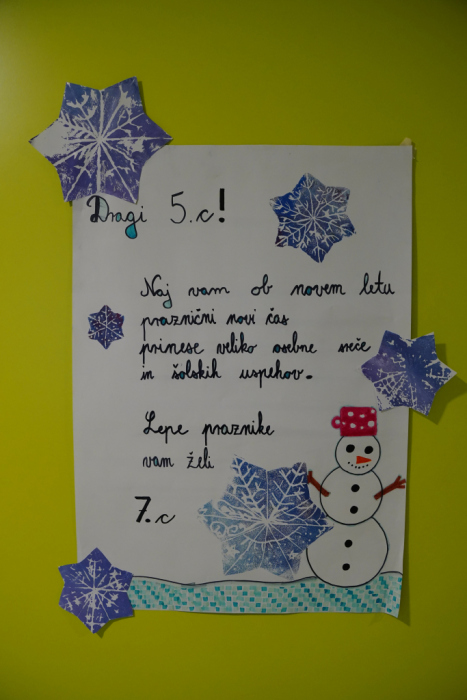 Dragi 5.c!
Naj vam ob novem letu
praznični novi čas
prinese veliko osebne sreče
in šolskih uspehov.
Lepe praznike
vam želi
7.c